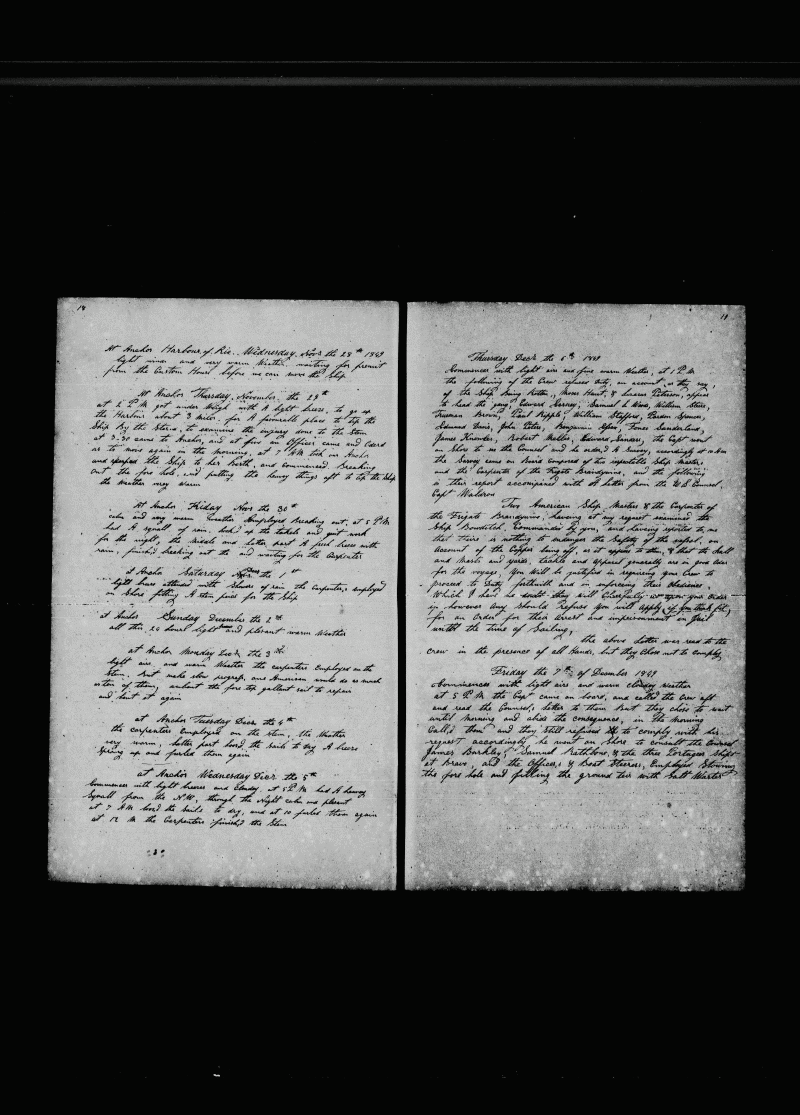 18
At Anchor Harbour, of Rio. Wednesday, Novr the 28th 1849
light winds and very warm Weather, waiting for permit
from the Custom House before we can move the Ship
At Anchor Thursday, November, the 29th
at 2 P.M. got under Weigh with A light breeze, to go up
the Harbour about 3 Miles, for A favourable place to tip the
Ship By the Stern, to examine the injury done to the Stem
at 3-30 came to Anchor, and at five an Officer came and Orderd
us to move again in the Morning, at 7 AM took in Anchor
and the Ship to her birth, and commenced Breaking
out the fore hole, and putting the heavy things aft to tip the Ship
the Weather very warm
At Anchor Friday Novr the 30th
calm and very warm Weather Employed Breaking out, at 5 P.M.
had A squall of rain, lash'd up the tackels and quit work
for the night, the Middle and latter part A fresh breeze with
rain, finished breaking out the and waiting for the Carpenter
At Anchor Saturday Decr the 1st
light breeze attended with Showers of rain the Carpenters employed
on Shore fitting A stem piece for the Ship
at Anchor Sunday December the 2nd
all this 24 hours light breeze and pleasant warm Weather
at Anchor Monday Decr the 3rd
light airs, and warm Weather the carpenters Employed on the
Stem, But make slow progress, one American would do as much
as ten of them, unbent the fore top gallant sail to repair
and bent it again
at Anchor Tuesday Decr the 4th
the carpenters Employed on the Stem, the Weather
very warm, latter part loosd the Sails to Dry A breeze
Spring up and furled them again
at Anchor Wednesday Decr the 5th
Commences with light breezes and Cloudy, at 5 P.M. had A heavy
Squall from the N.W. through the Night calm and plesent
at 7 A.M. loosd the Sails to dry, and at 10 furled them again
at 12 M the Carpenters finished the Stem
19
Thursday Decr the 6th 1849
Commences with light airs and fine warm Weather, at 1 P.M.
the following of the Crew refuses duty, on account, as they say,
of the Ship Being Rotten, Moses Hunt, & Lucius Peterson, appear
to head the gang Edward Karney, Samuel L. Wood, William Stees,
Freeman Brown, Paul Ripple, William Stafford, Pardon Spencer,
Edmund Davis, John Peters, Benjamin, James Sunderland,
James Knowles, Robert Melles, Edward Sanders, the Capt went
on Shore to see the Counsel and he order,d A Survey, accordingly at 10 A.M.
the Survey came on Board composed of two respectable Ship Masters,
and the Carpenter of the Frigate Brandywine, and the following
is their report accompanied with A letter from the U.S. Counsel,
Capt Waldron
Two American Ship Masters & the Carpenter of
the Frigate Brandywine, having at my request examined the
Ship Bowditch, Commanded By you, and having reported to me
that there is nothing to endanger the Safety of the vessel, on
account of the Copper being off, as it appears to them, & that the hull
and Masts and yards, tackle and apparel generally are in good order
for the voyage, You Will be justified in requiring your Crew to
proceed to Duty forthwith and in enforcing their Obedience,
Which I have no doubt they will Cheerfully upon your Order
if however Any should Refuse You will apply, if you think fit,
for an Order for their Arrest and imprisonment in Jail
untill the time of Sailing,
the above Letter was read to the
crew in the presence of all Hands, but they Chose not to comply
Friday the 7th of December 1849
Commences with light airs and warm cloudy weather
at 5 P.M. the Capt came on board, and called the Crew aft
and read the Counsel,s letter to them But they chose to wait
untill Morning and abide the consequence, in the Morning
Call,d them and they Still refused to comply with his
request accordingly he went on Shore to consult the Counsel
James Barkley, Samuel Rathbone, & the three Portugees Ship,d
at Bravo, and the Officers, & Boat Steerers, Employed Stowing
the fore hole and filling the ground tier with Salt Water